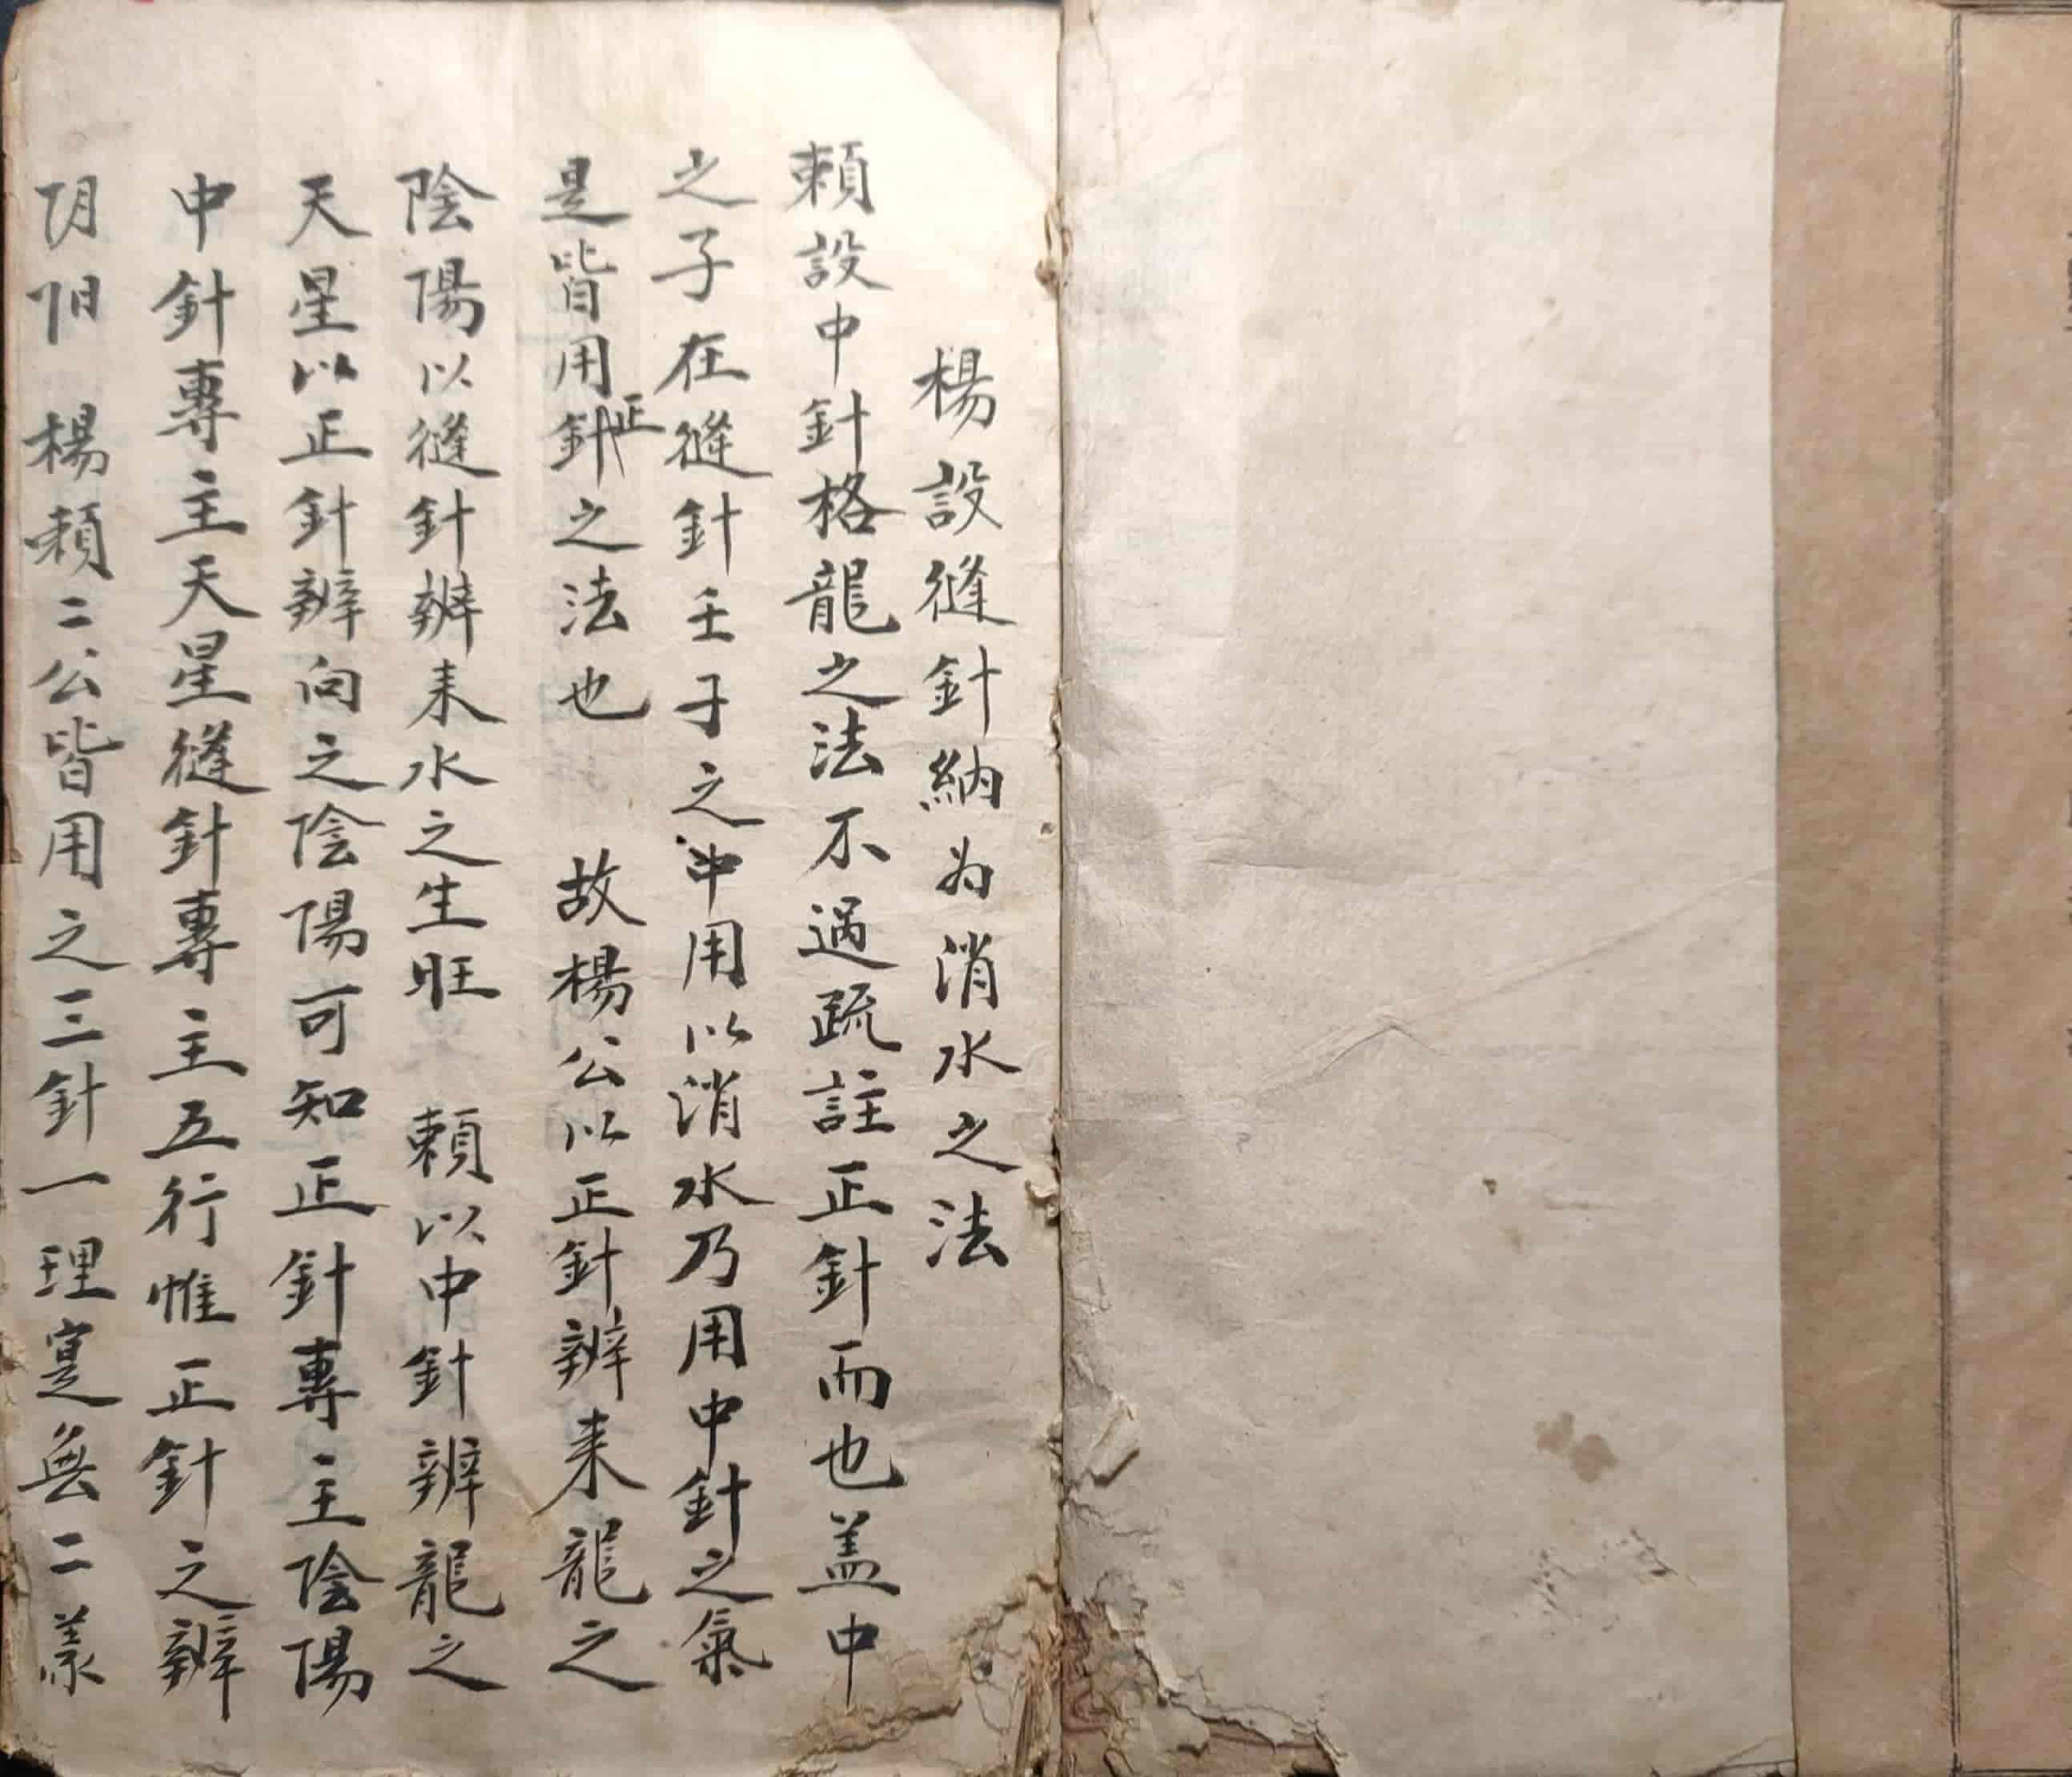 楊設縫針納为消水之法
賴設中針格龍之法不過疏註正針而也盖中
之子在縫針壬子之中用以消水乃用中針之氣
是皆用正針之法也 故楊公以正針辨来龍之
陰陽以縫針辨来水之生旺 賴以中針辨龍之
天星以正針辨向之陰陽可知正針專主陰陽
中針專主天星縫針專主五行惟正針之辨
阴阳楊賴二公皆用之三針一理寔無二義